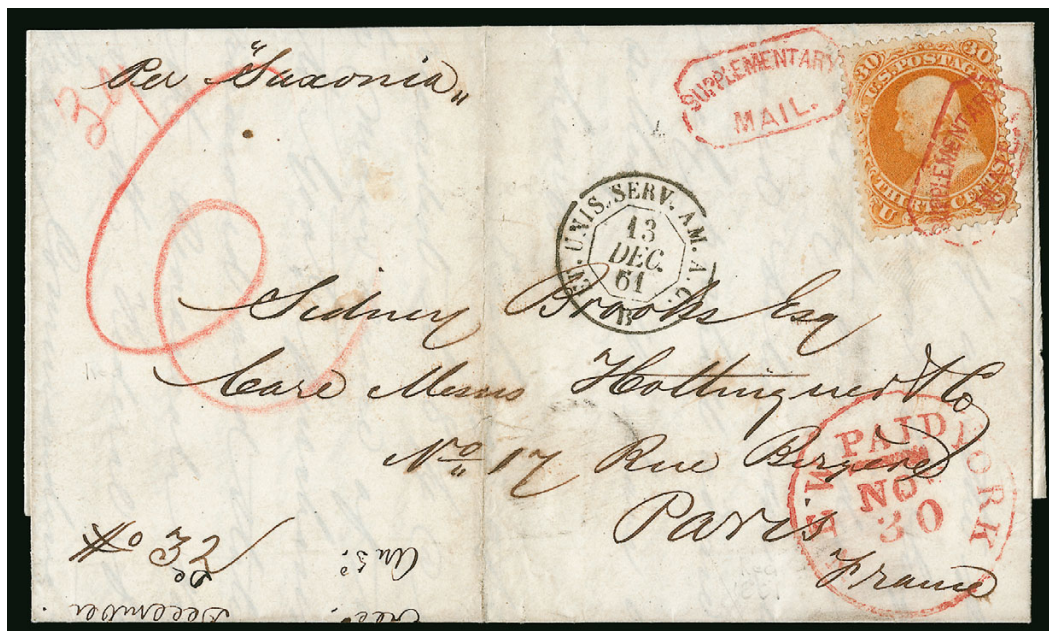 Per "Saxonia"
SUPPLEMENTARY
MAIL.
30 U.S. POSTAGE 30
THIRTY CENTS
U S
SUPPLEMENTARY
MAIL.
ET. UNIS. SERV. AM. A.C.
13
DEC.
61
B
Sidney Brooks Esq
Care Messrs Hottinguer & Co
No 17 Rue Bergère
Paris
France
NEW YORK
PAID
NOV
30
No 32
Ans:
Dec
December